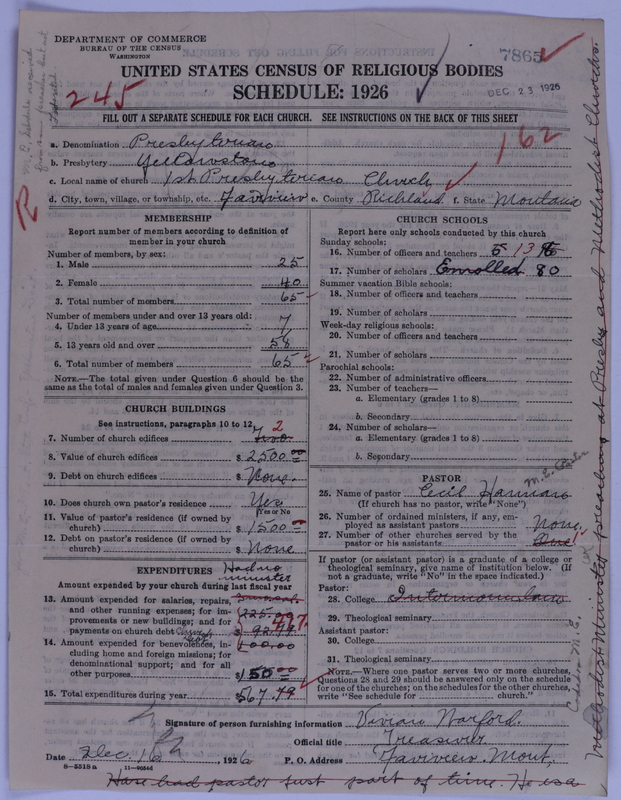 DEPARTMENT OF COMMERCE
BUREAU OF THE CENSUS
WASHINGTON
7865
UNITED STATES CENSUS OF RELIGIOUS BODIES
SCHEDULE: 1926
DEC 23 1926
245
FILL OUT A SEPARATE SCHEDULE FOR EACH CHURCH. SEE INSTRUCTIONS ON THE BACK OF THIS SHEET
162
a. Denomination Presbyterian
b. Presbytery Yellowstone
c. Local name of church 1st Presbyterian Church
d. City, town, village, or township, etc. Fairview e. County Richland f. State Montana
R
MEMBERSHIP
Report number of members according to definition of
member in your church
Number of members, by sex:
1. Male 25
2. Female 40
3. Total number of members 65
Number of members under and over 13 years old:
4. Under 13 years of age 7
5. 13 years old and over 58
6. Total number of members 65
NOTE.—The total given under Question 6 should be the
same as the total of males and females given under Question 3.
CHURCH BUILDINGS
See instructions, paragraphs 10 to 12
2
7. Number of church edifices Two
8. Value of church edifices $ 2500.00
9. Debt on church edifices $ None.
10. Does church own pastor's residence Yes
(Yes or No)
11. Value of pastor's residence (if owned by
church) $ 1500.00
12. Debt on pastor's residence (if owned by
church) $ None
EXPENDITURES Had no
minister
Amount expended by your church during last fiscal year
13. Amount expended for salaries, repairs,
and other running expenses; for im-
provements or new buildings; and for
payments on church debt
225.00
$ 92.79
417
14. Amount expended for benevolences, in-
cluding home and foreign missions; for
denominational support; and for all
other purposes $ 150.00
100.00
15. Total expenditures during year $ 567.79
CHURCH SCHOOLS
Report here only schools conducted by this church
Sunday schools:
16. Number of officers and teachers 13
17. Number of scholars Enrolled 80
Summer vacation Bible schools:
18. Number of officers and teachers
19. Number of scholars
Week-day religious schools:
20. Number of officers and teachers
21. Number of scholars
Parochial schools:
22. Number of administrative officers
23. Number of teachers—
a. Elementary (grades 1 to 8)
b. Secondary
24. Number of scholars—
a. Elementary (grades 1 to 8)
b. Secondary
PASTOR
M.E. Pastor
25. Name of pastor Cecil Hannan
(If church has no pastor, write "None")
26. Number of ordained ministers, if any, em-
ployed as assistant pastors None
27. Number of other churches served by the
pastor or his assistants One
If pastor (or assistant pastor) is a graduate of a college or
theological seminary, give name of institution below. (If
not a graduate, write "No" in the space indicated.)
Pastor:
28. College Intermountain
29. Theological seminary
Assistant pastor:
30. College
31. Theological seminary
NOTE.—Where one pastor serves two or more churches,
Questions 28 and 29 should be answered only on the schedule
for one of the churches; on the schedules for the other churches,
write "See schedule for church."
Methodist Minister preaching at Presby and Methodist Churches.
Signature of person furnishing information Vivian Warford.
Official title Treasurer
Date Dec 16, 1926 P. O. Address Fairview Mont.
8-5318a
Have had pastor just part of time. He is a